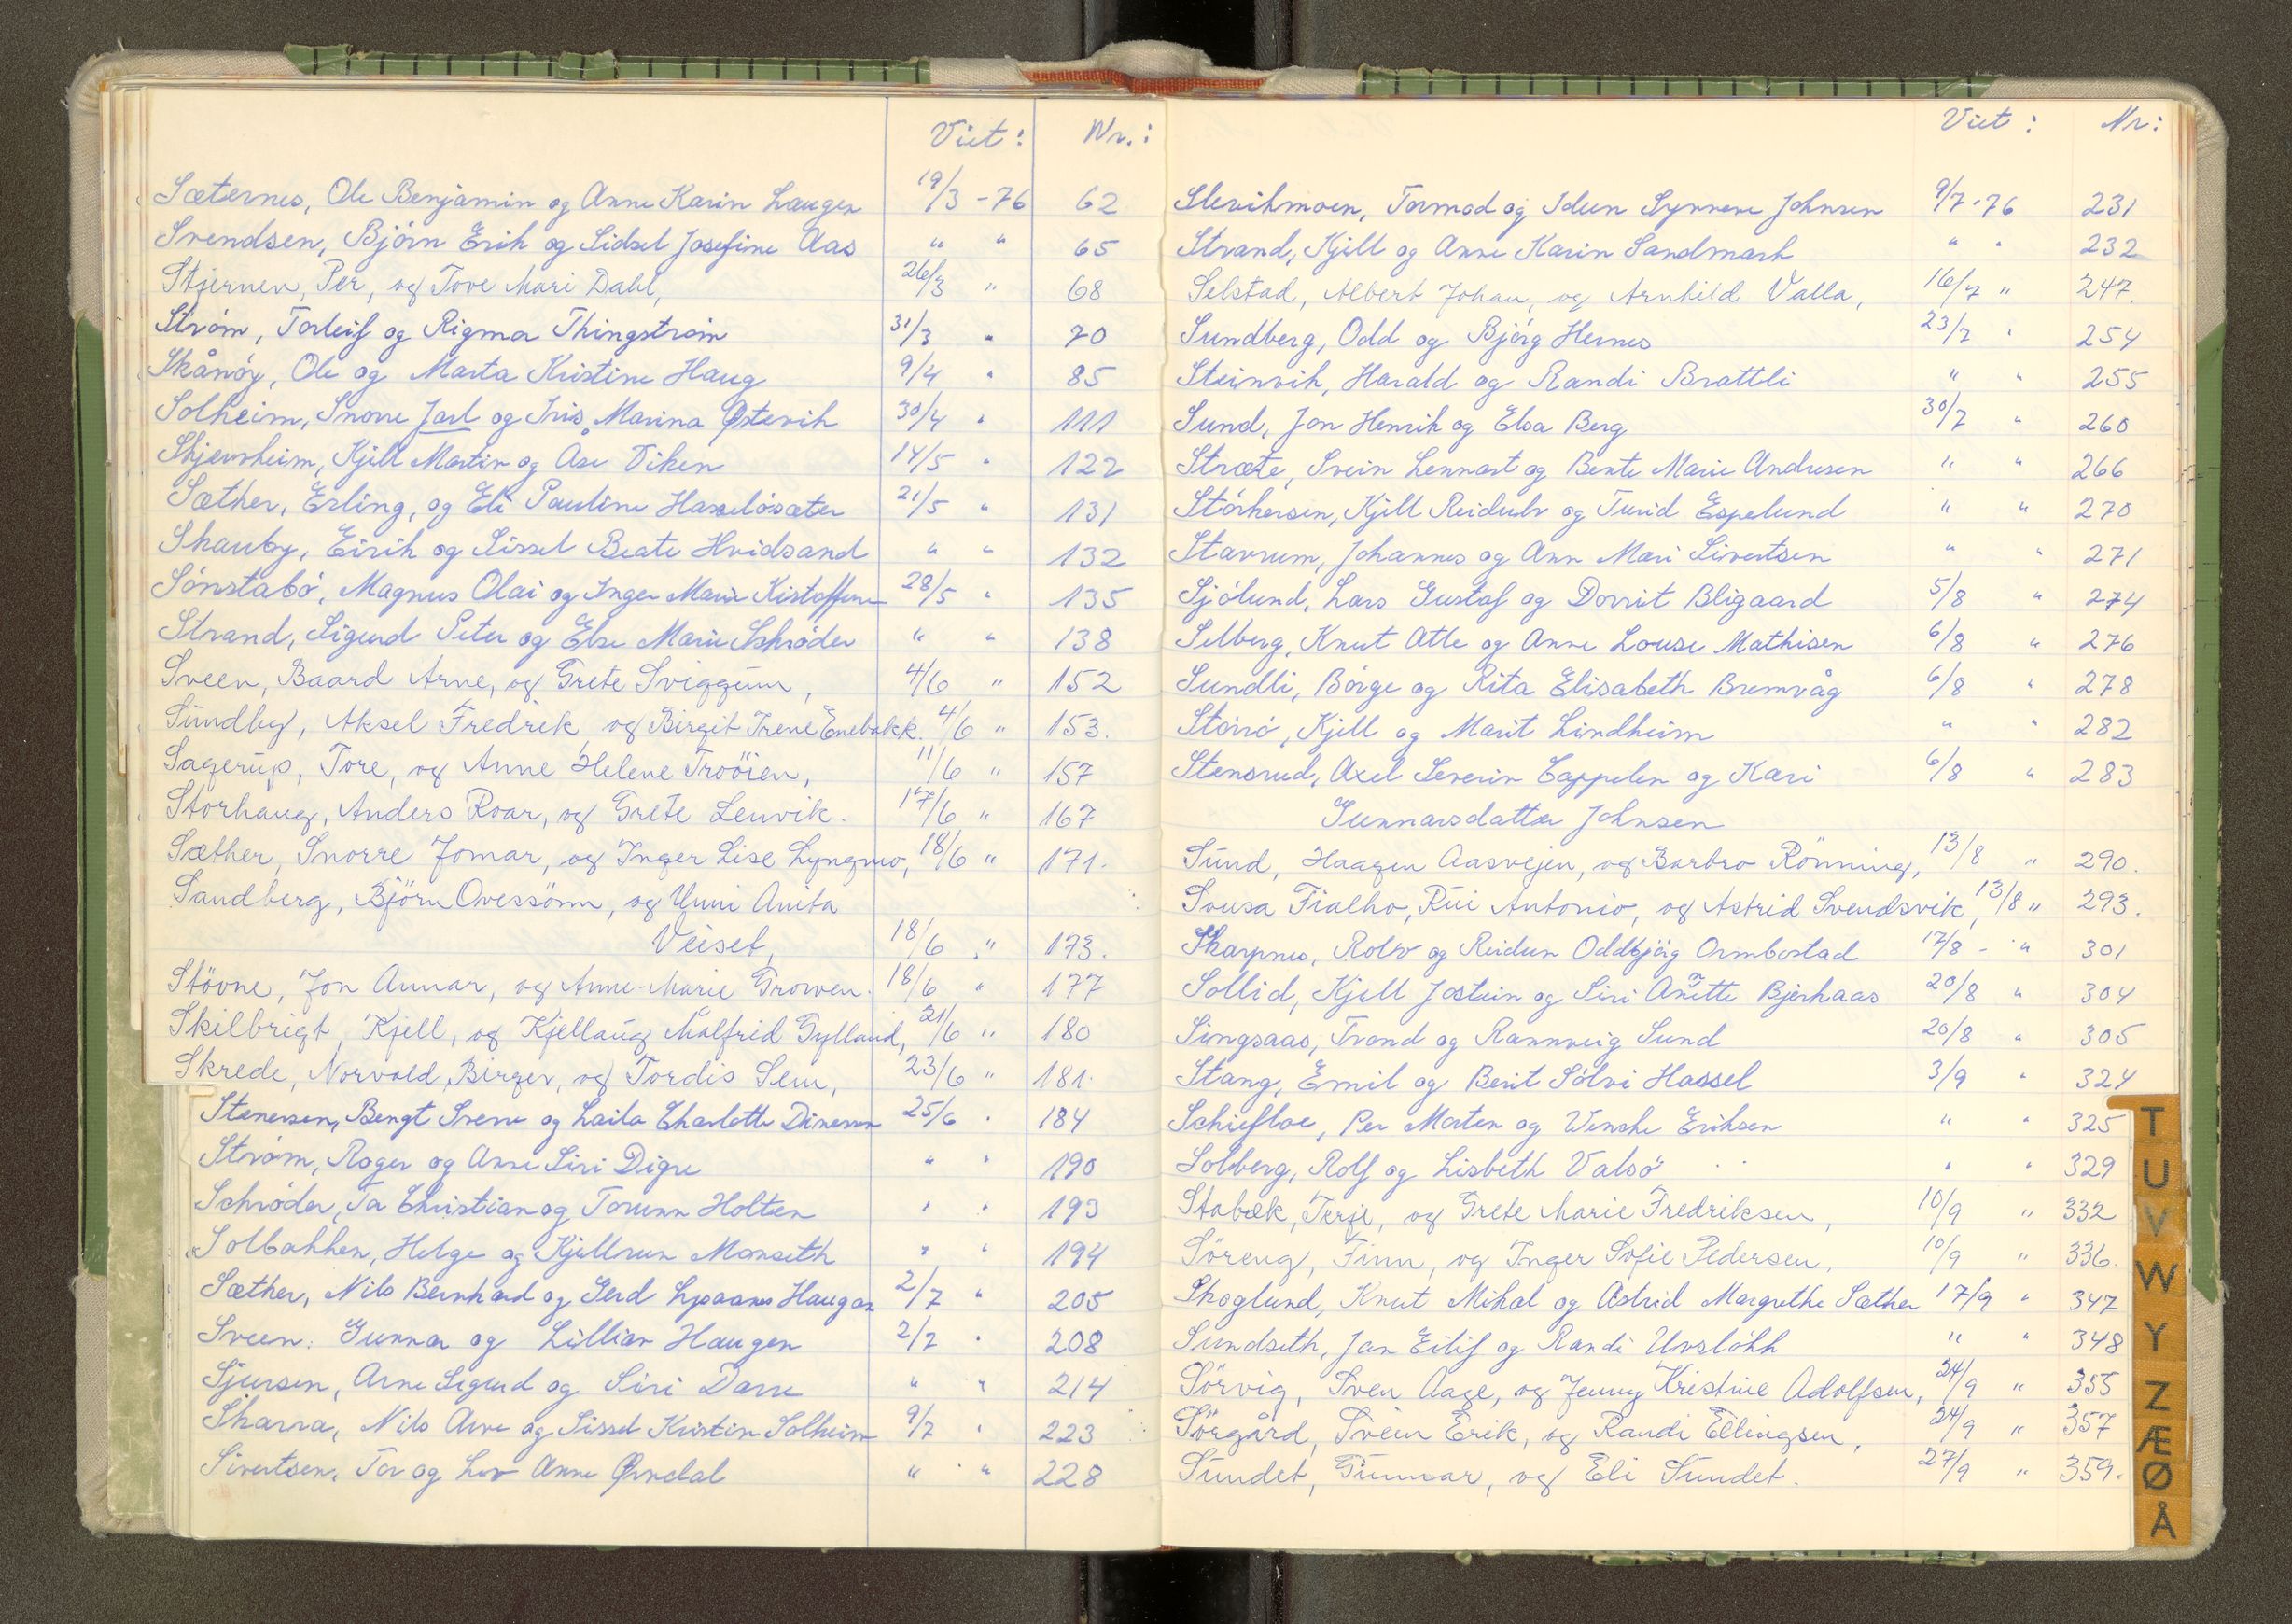 Viet: Nr.:
Sæternes, Ole Benjamin og Anne Karin Haugen 19/3 -76 62
Svendsen, Bjórn Erik og Lidsel Josefine Aas " " 65
Stjernen, Per, og Tove Mari Dahl, 26/3 " 68
Stróm, Torleif og Rigmor Thingstróm 31/3 " 70
Skånóy, Ole og Marta Kristine Haug 9/4 " 85
Solheim, Snorre Jarl og Iris Marina Østevik 30/4 " 111
Skjevsheim, Kjell Martin og Åse Viken 14/5 " 122
Sæther, Erling, og Eli Pauline Hasselósæter 21/5 " 131
Skauby, Eirik og Sissel Beate Hvidsand " " 132
Sónstabó, Magnus Olai og Inger Marie Kistoffersen 28/5 " 135
Strand, Sigurd Peter og Else Marie Schróder " " 138
Sveen, Baard Arne, og Grete Sviggum, 4/6 " 152
Sundby, Aksel Fredrik og Birgit Irene Enebakk. 4/6 " 153.
Sagerup, Tore, og Anne Helene Troöien, 11/6 " 157
Storhaug, Anders Roar, og Grete Lenvik. 17/6 " 167
Sæther, Snorre Jomar, og Inger Lise Lyngmo, 18/6 " 171.
Sandberg, Björn Ovessönn, og Unni Anita
Veiset, 18/6 " 173.
Stövne, Jon Annar, og Anne-Marie Growen. 18/6 " 177
Skilbrigt, Kjell, og Kjellaug Målfrid Gylland, 21/6 " 180
Skrede, Norvald Birger, og Tordis Sem, 23/6 " 181.
Stenersen, Bengt Sverre og Laila Charlotte Dinesen 25/6 " 184
Stróm, Roger og Anne Siri Digre " " 190
Schróder, Tor Christian og Torunn Holten " " 193
Solbakken, Helge og Kjellrun Monseth " " 194
Sæther, Nils Bernhard og Gerd Haugan 2/7 " 205
Sveen, Gunnar og Lillian Haugen 2/7 " 208
Sjursen, Arne Sigurd og Siri Darre " " 214
Skarra, Nils Arve og Sissel Kristin Solheim 9/7 " 223
Sivertsen, Tor og Liv Anne Ørndal " " 228
Viet: Nr:
Slevikmoen, Tormod og Idun Synnøve Johnsen 9/7-76 231
Strand, Kjell og Anne Karin Sandmark " " 232
Selstad, Albert Johan, og Arnhild Valla, 16/7 " 247.
Sundberg, Odd og Bjórg Hernes 23/7 " 254
Steinvik, Harald og Randi Brattli " " 255
Sund, Jon Henrik og Elsa Berg 30/7 " 260
Stræte, Svein Lennart og Bente Marie Andresen " " 266
Stórkersen, Kjell Reidulv og Turid Espelund " " 270
Stavrum, Johannes og Ann Mari Sivertsen " " 271
Sjólund, Lars Gustaf og Dorrit Bligaard 5/8 " 274
Selberg, Knut Atle og Anne Louise Mathisen 6/8 " 276
Sundli, Bórge og Rita Elisabeth Bremvåg 6/8 " 278
Storró, Kjell og Marit Lindheim " " 282
Stensrud, Axel Severin Cappelen og Kari 6/8 " 283
Gunnarsdatter Johnsen
Sund, Haagen Aasvejen, og Barbro Rönning, 13/8 " 290.
Sousa Fialho, Rui Antonio, og Astrid Svendsvik, 13/8 " 293.
Skarpnes, Rolv og Reidun Oddbjórg Ormbostad 17/8 - " 301
Sollid, Kjell Jostein og Siri Anette Bjerkaas 20/8 " 304
Singsaas, Trond og Rannveig Sund 20/8 " 305
Stang, Emil og Berit Sólvi Hassel 3/9 " 324
Schiefloe, Per Morten og Wenche Eriksen " " 325
Solberg, Rolf og Lisbeth Valsó " " 329
Stabæk, Terje, og Grete Marie Fredriksen, 10/9 " 332
Söreng, Finn, og Inger Sofie Pedersen, 10/9 " 336.
Skoglund, Knut Mikal og Astrid Margrethe Sæther 17/9 " 347
Sundseth, Jan Eilif og Randi Urslókk " " 348
Sörvig, Sven Aage, og Jenny Kristine Adolfsen, 24/9 " 355
Sörgård, Svein Erik, og Randi Ellingsen, 24/9 " 357
Sundet, Gunnar, og Eli Sundet. 27/9 " 359.
T
U
V
W
Y
Z
Æ
Ø
Å